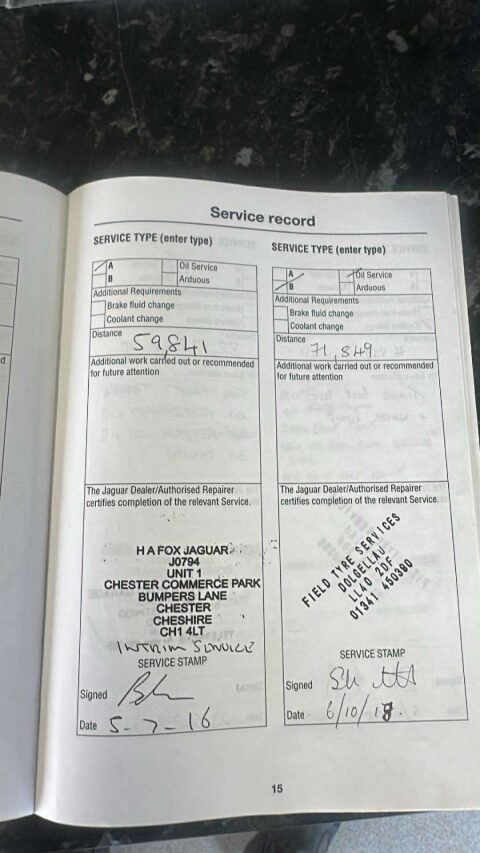 Service record
SERVICE TYPE (enter type)
A
Oil Service
B
Arduous
Additional Requirements
Brake fluid change
Coolant change
Distance
59,841
Additional work carried out or recommended
for future attention
The Jaguar Dealer/Authorised Repairer
certifies completion of the relevant Service.
H A FOX JAGUAR
J0794
UNIT 1
CHESTER COMMERCE PARK
BUMPERS LANE
CHESTER
CHESHIRE
CH1 4LT
INTRIM SERVICE
SERVICE STAMP
Signed
Date 5-7-16
SERVICE TYPE (enter type)
A
Oil Service
B
Arduous
Additional Requirements
Brake fluid change
Coolant change
Distance
71,849
Additional work carried out or recommended
for future attention
The Jaguar Dealer/Authorised Repairer
certifies completion of the relevant Service.
FIELD TYRE SERVICES
DOLGELLAU
LL40 2DF
01341 450360
SERVICE STAMP
Signed
Date 6/10/18.
15